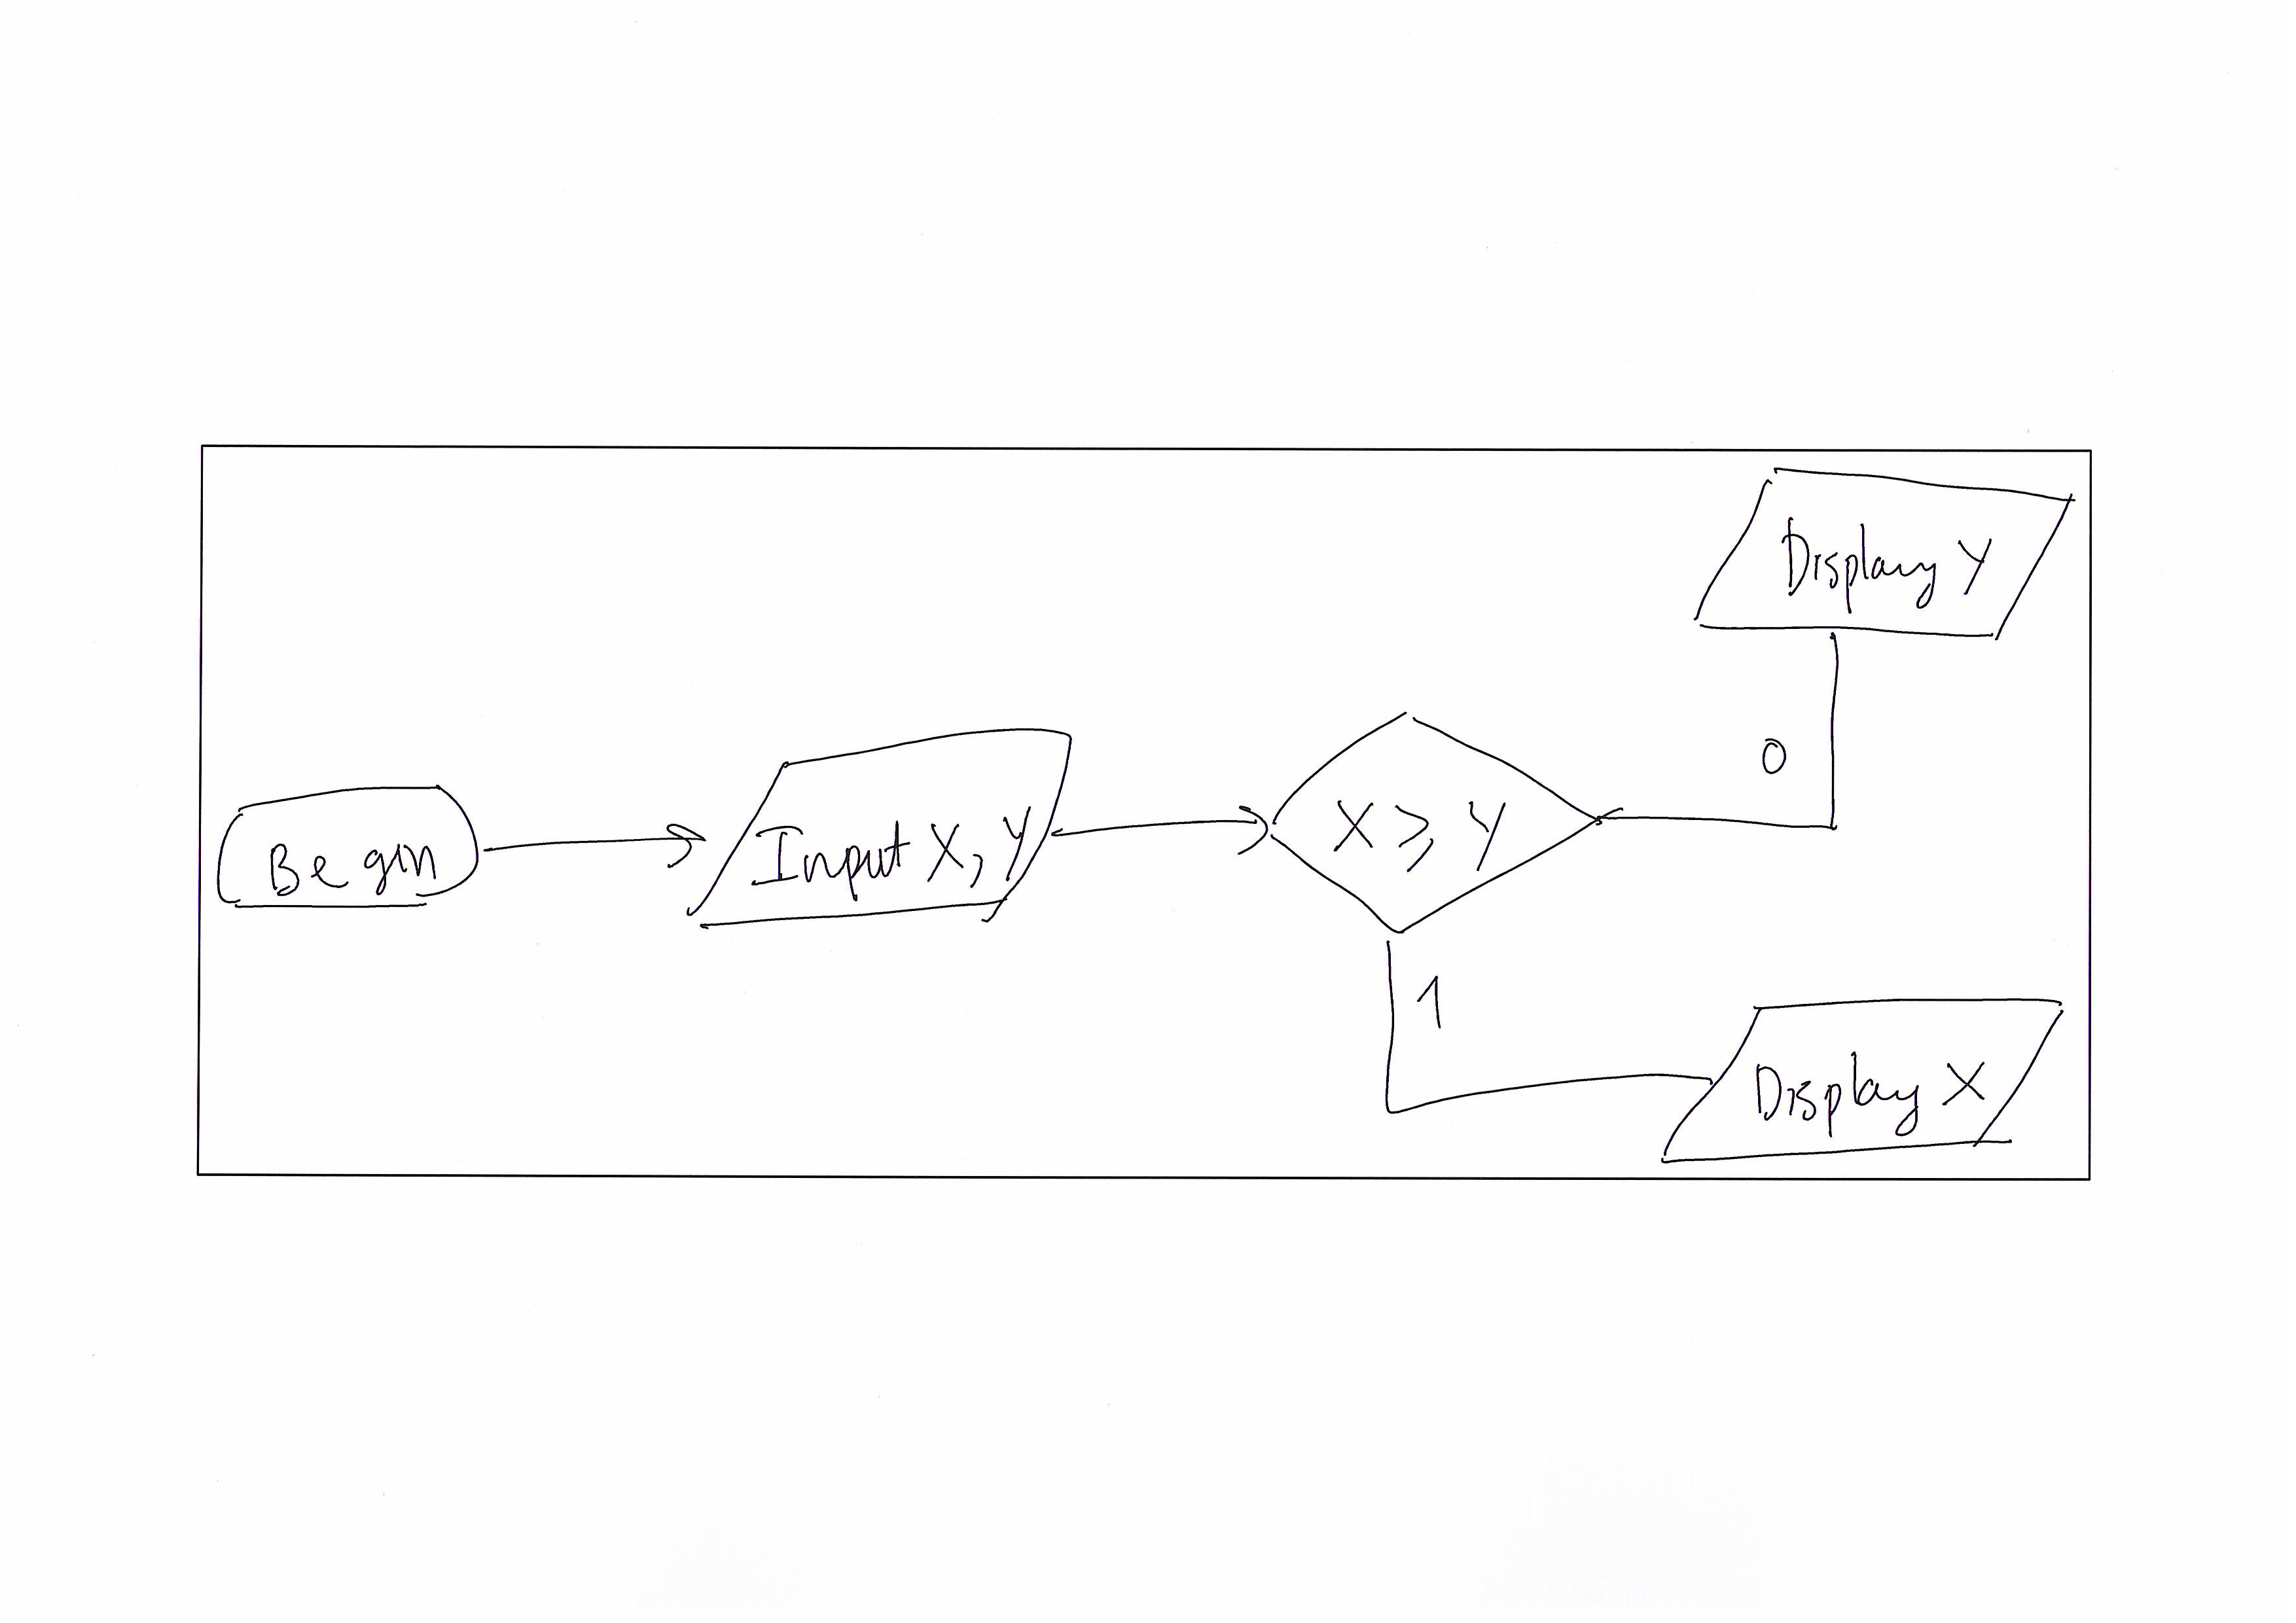 Begin
Input X, Y
X ⩾ Y
0
Display Y
1
Display X